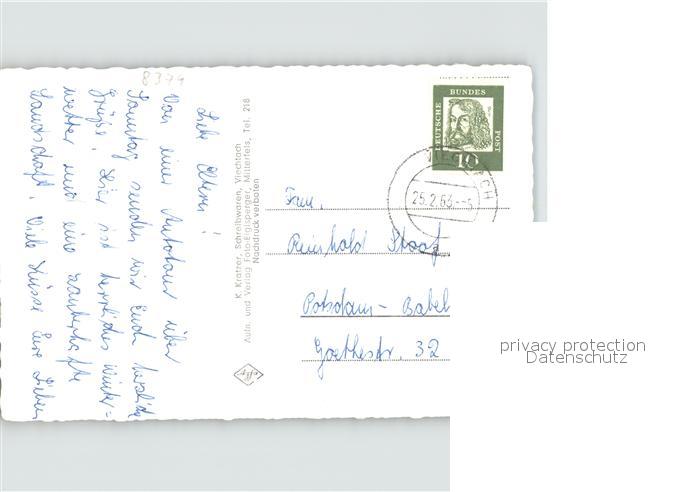 8379
Liebe Eltern!
Von einer Autotour über
Samstag senden wir Euch herzliche
Grüße. Hier ist herrliches Winter=
wetter und eine zauberhafte
Landschaft. Viele Küsse Eure Lieben
K. Kratzer, Schreibwaren, Viechtach
Aufn. und Verlag Foto-Eiglsperger, Mitterfels, Tel. 218
Nachdruck verboten
DEUTSCHE
BUNDES
POST
10
VIECHTACH
25.2.63.--5
Fam.
Reinhold
Potsdam-Babel
Goethestr. 32
privacy protection
Datenschutz